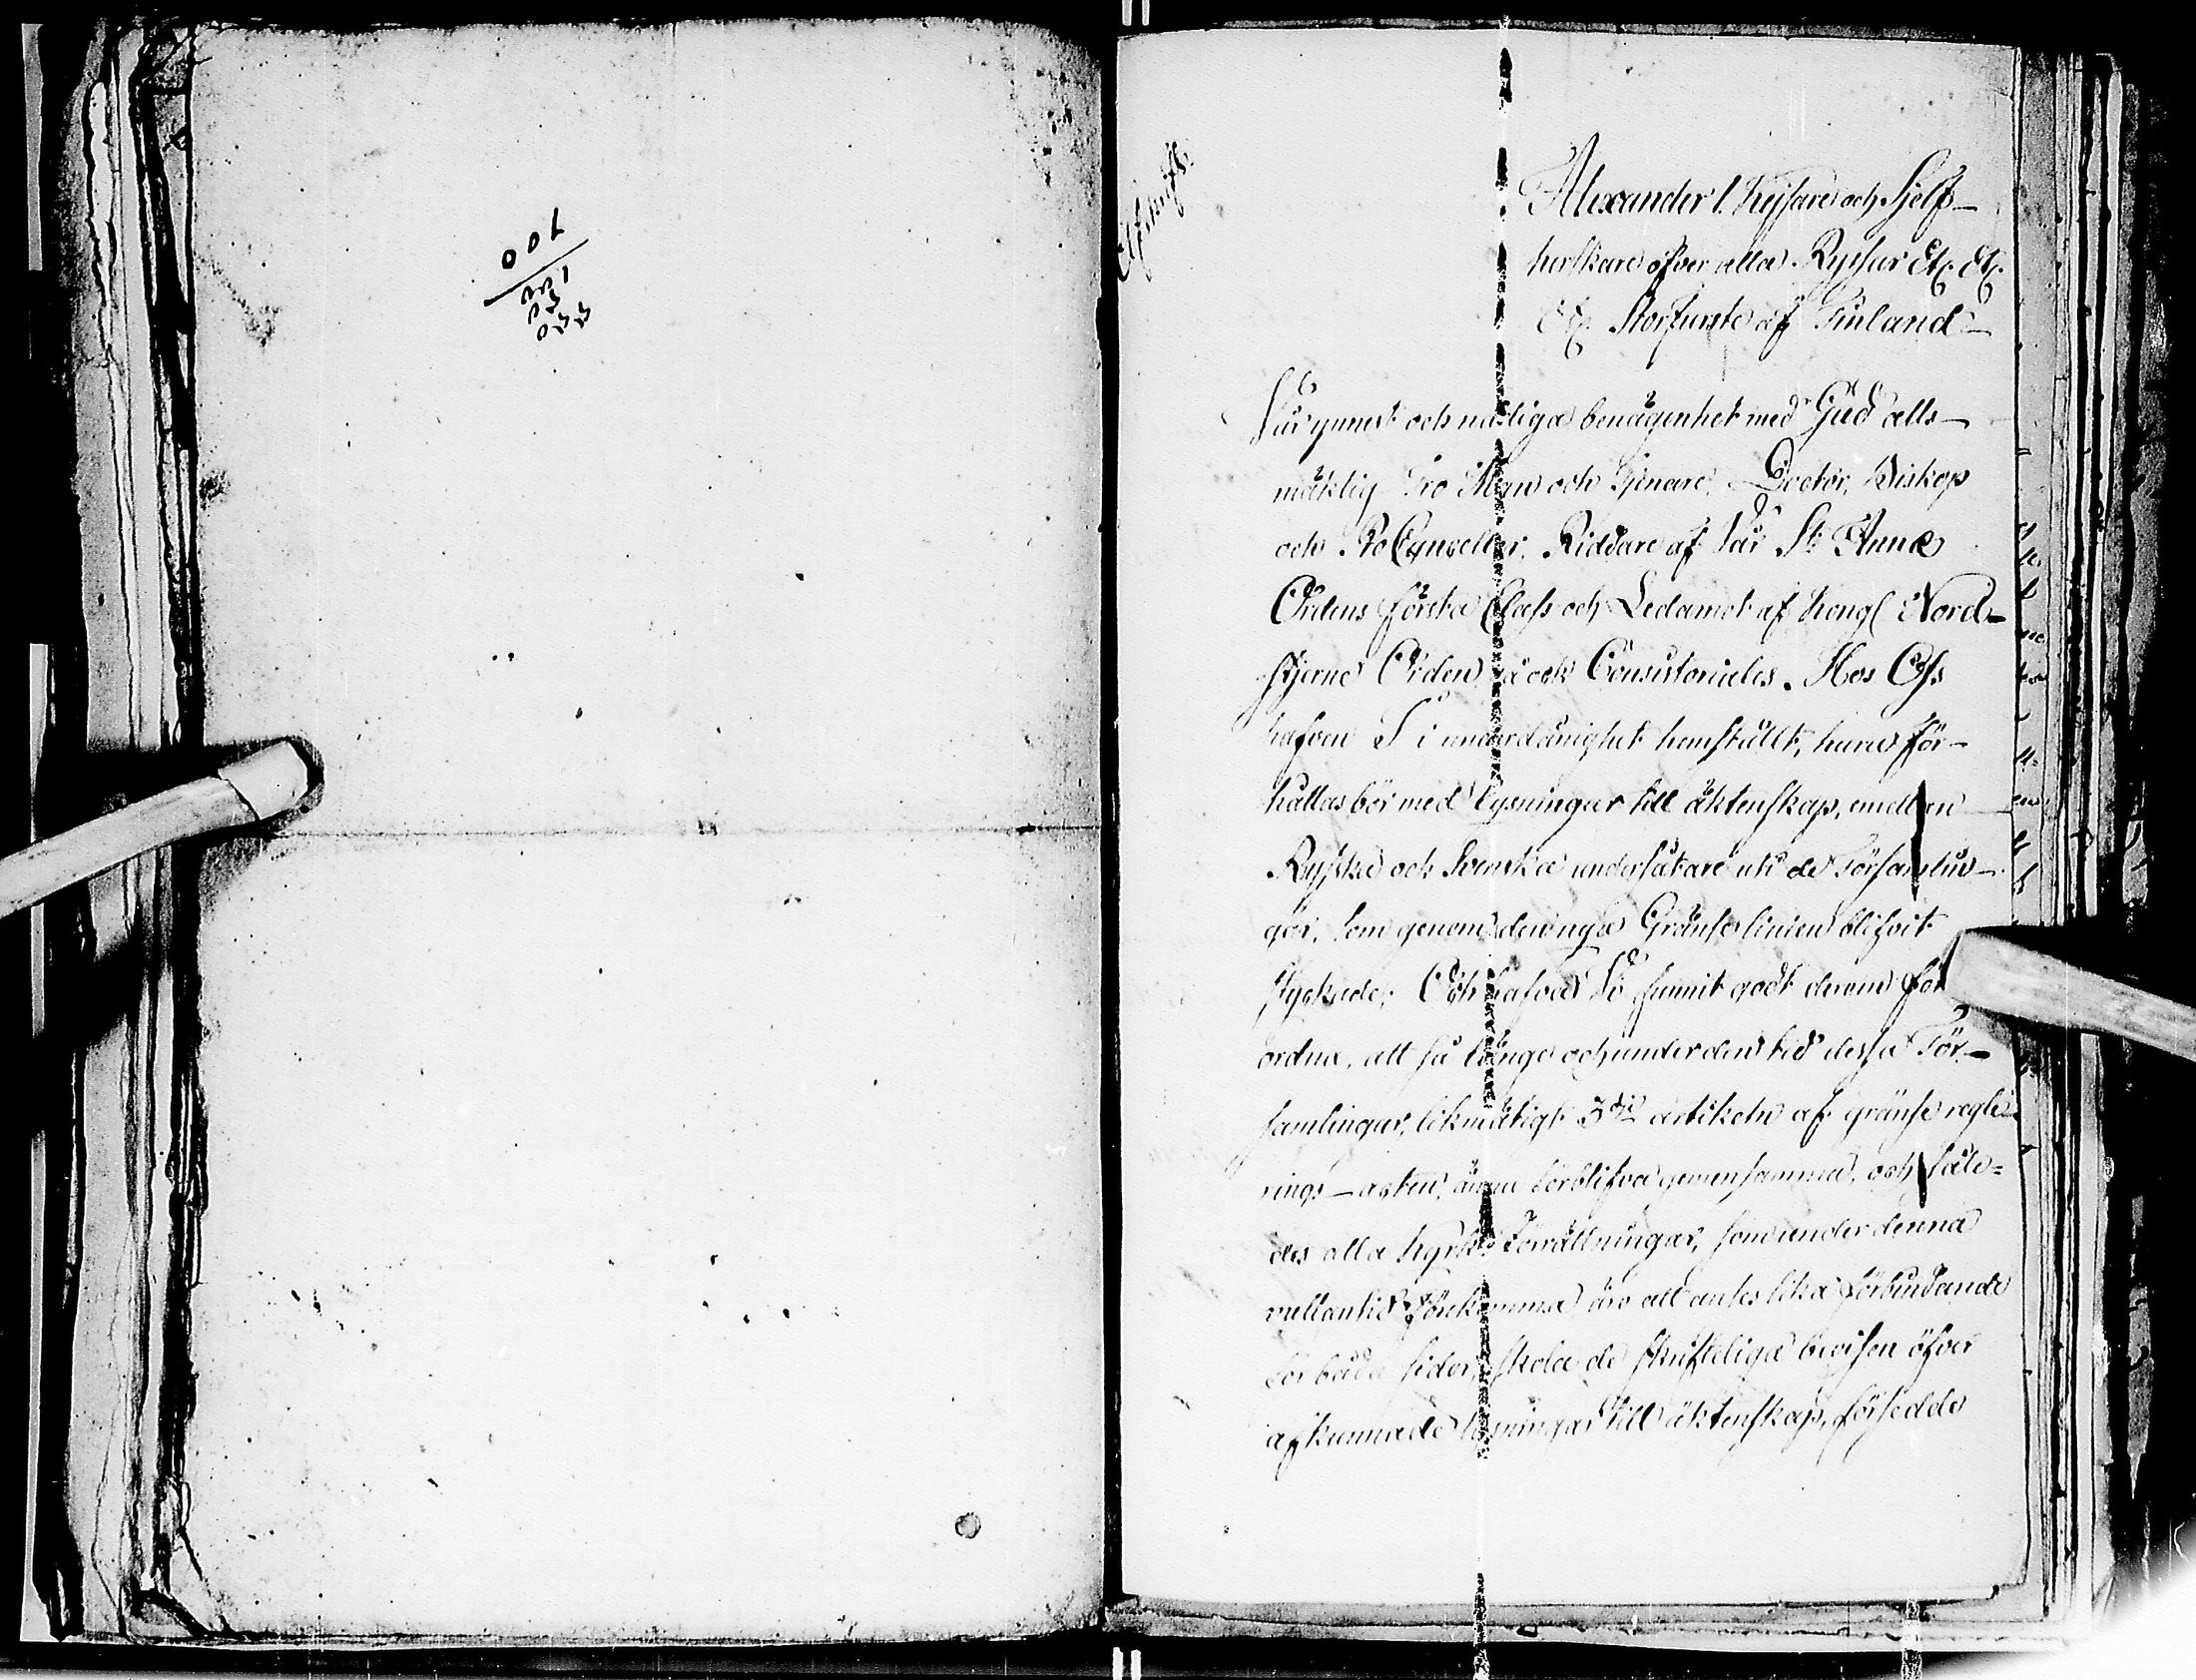 Afskrift.
Alexander I. Kejsare och Sjelf-
herskare öfver alla Ryssar Etc. Etc.
Etc. Storfurste af Finland
Vår ynnest och nådiga benägenhet med Gud alls-
mäktig Tro Man och Tjenare, Doctor, Biskop
och ProCanceller, Riddare af Vår St Annæ
Ordens första Class och Ledamot af Kongl Nord-
stjerne Orden, så ock Consistoriales. Hos Oss
hafven I i underdånighet hemställt, huru för-
hållas bör med lysningar till äktenskap, emellan
Ryska och Svenska undersåtare uti de Församlin-
gar, som genom den nya Gränse linien blifvit
styckade; Och hafva Vi funnit godt derom för
ordna, att så länge och under den tid dessa För-
samlingar, likmätigt 3dje artikeln af gränse regle
rings-acten, ännu förblifva gemensamma, och såle-
des alla Kyrko Förrättningar, som under denna
mellantid förekomma, äro att anses lika förbindande
för båda sidor, skola de skrifteliga bevisen öfver
afkunnade lysningar till äktenskap, försedde